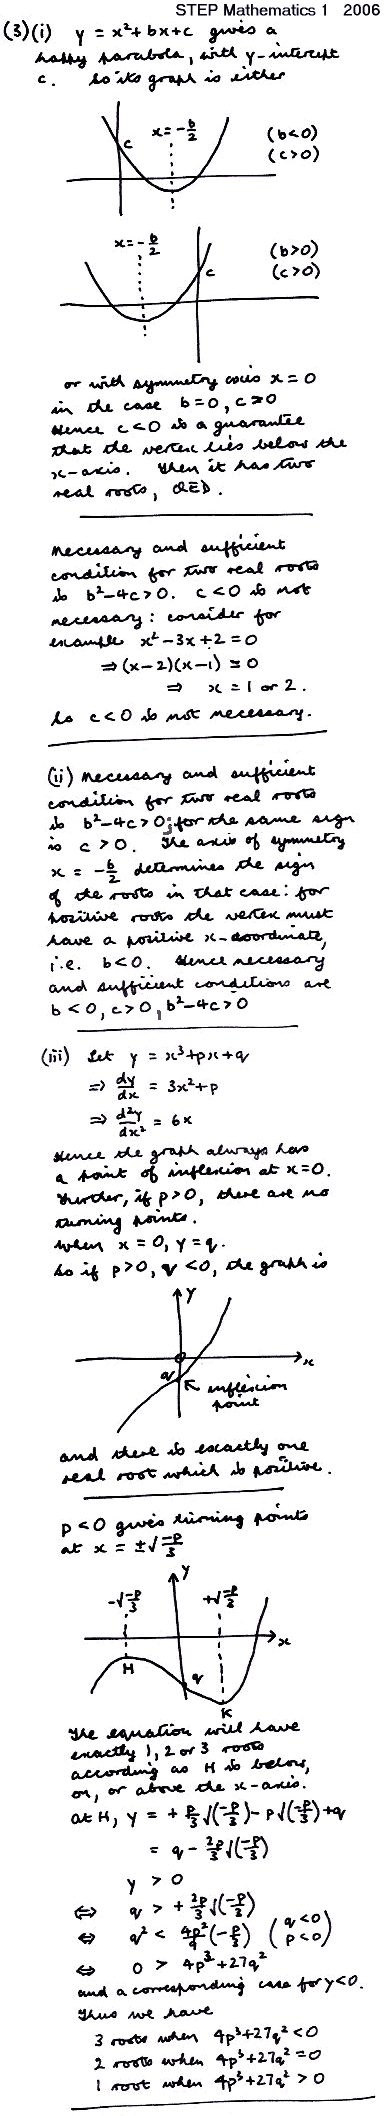 STEP Mathematics 1 2006
(3)(i) y = x²+bx+c gives a
happy parabola, with y-intercept
c. So its graph is either
x=-b/2
c
(b<0)
(c>0)
x=-b/2
c
(b>0)
(c>0)
or with symmetry axis x = 0
in the case b=0, c⩾0
Hence c<0 is a guarantee
that the vertex lies below the
x-axis. Then it has two
real roots, QED.
Necessary and sufficient
condition for two real roots
is b²-4c>0. c<0 is not
necessary: consider for
example x²-3x+2=0
⇒(x-2)(x-1)=0
⇒ x = 1 or 2.
So c<0 is not necessary.
(ii) Necessary and sufficient
condition for two real roots
is b²-4c>0; for the same sign
is c>0. The axis of symmetry
x = -b/2 determines the sign
of the roots in that case: for
positive roots the vertex must
have a positive x-coordinate,
i.e. b<0. Hence necessary
and sufficient conditions are
b<0, c>0, b²-4c>0
(iii) Let y = x³+px+q
⇒ dy/dx = 3x²+p
⇒ d²y/dx² = 6x
Hence the graph always has
a point of inflexion at x=0.
Further, if p>0, there are no
turning points.
When x=0, y=q.
So if p>0, q<0, the graph is
y
O
x
q
inflexion
point
and there is exactly one
real root which is positive.
p<0 gives turning points
at x = ±√(-p/3)
y
-√(-p/3)
+√(-p/3)
x
H
q
K
The equation will have
exactly 1, 2 or 3 roots
according as H is below,
on, or above the x-axis.
At H, y = +p/3√(-p/3)-p√(-p/3)+q
= q - 2p/3√(-p/3)
y > 0
⇔ q > +2p/3√(-p/3)
⇔ q² < 4p²/9(-p/3) (q<0 p<0)
⇔ 0 > 4p³+27q²
and a corresponding case for y<0.
Thus we have
3 roots when 4p³+27q²<0
2 roots when 4p³+27q²=0
1 root when 4p³+27q²>0